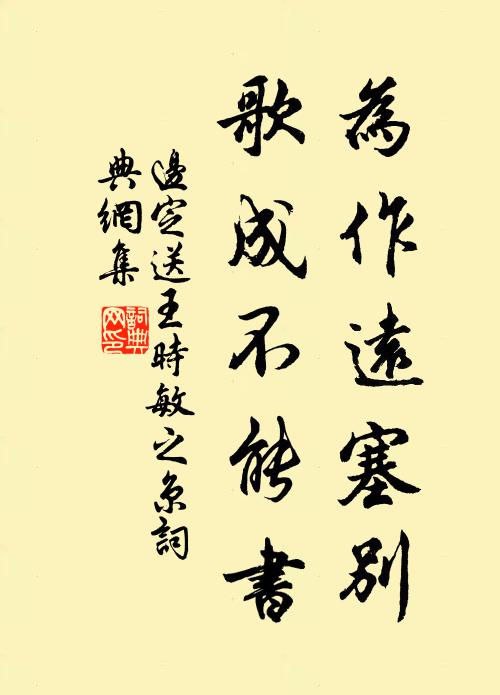 為作遠塞別
歌成不能書
邊定送王時敏之京詞
典網集
詞典
网印